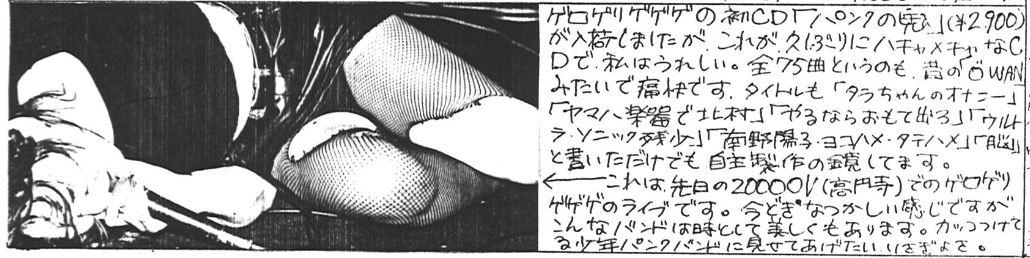 ゲロゲリゲゲゲの初CD「パンクの鬼」(¥2,900)
が入荷しましたが、これが久しぶりにハチャメチャなC
Dで、私はうれしい。全75曲というのも、昔の「Ö WAN
みたいで痛快です。タイトルも「タラちゃんのオナニー」
「ヤマハ楽器で北村」「やるならおもて出ろ」「ウルト
ラ・ソニック残少」「南野陽子・ヨコハメ・タテハメ」「脳」
と書いただけでも自主製作の鏡してます。
←これは、先日の20000V(高円寺)でのゲロゲリ
ゲゲゲのライブです。今どきなつかしい感じですが
こんなバンドは時として美しくもあります。カッコつけて
る少年パンクバンドに見せてあげたい、いさぎよさ。